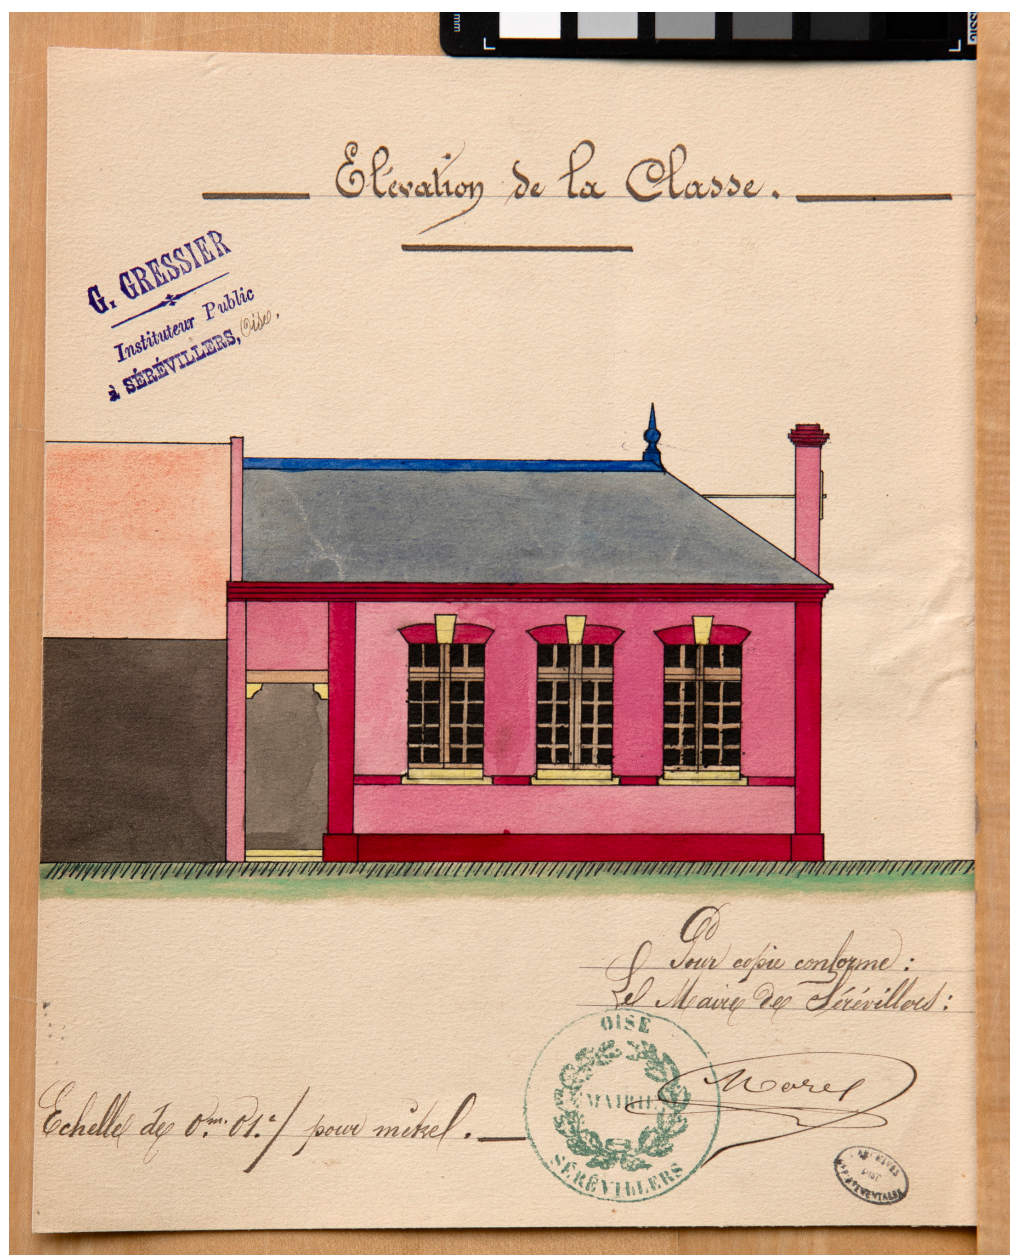 mm
Elévation de la Classe.
G. GRESSIER
Instituteur Public
à SÉRÉVILLERS, Oise.
Pour copie conforme :
Le Maire de Sérévillers :
OISE
MAIRIE
SÉRÉVILLERS
Morel
Echelle de 0.m 01.c/ pour mètre.
ARCHIVES
OISE
DÉPARTEMENTALES